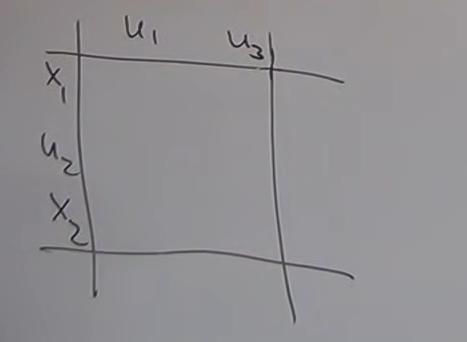 u₁ u₃
x₁
u₂
x₂